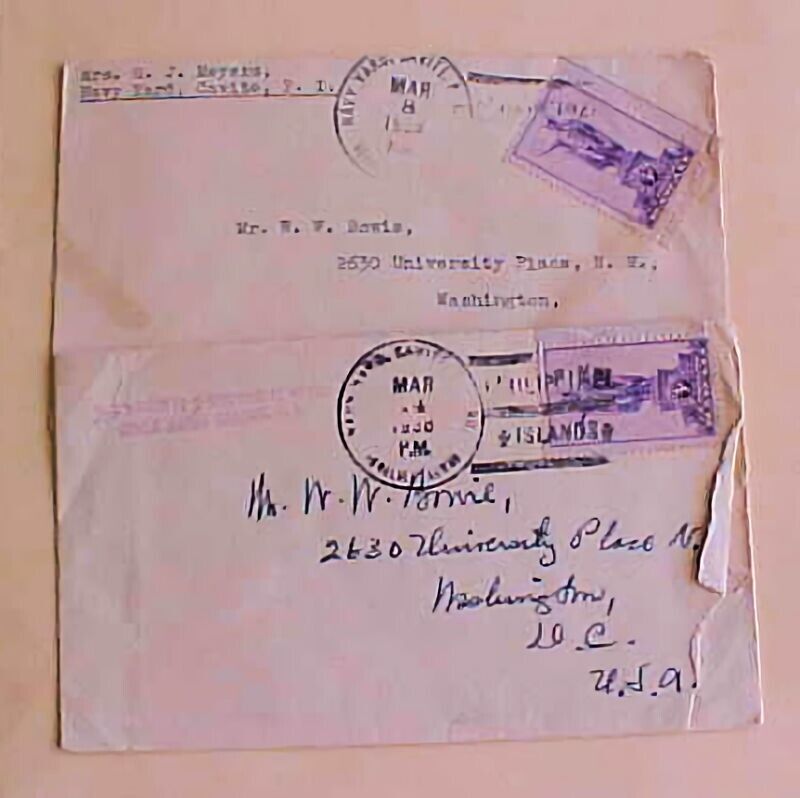 Mrs. H. J. Meyers,
Navy Yard, Cavite, P. I.
NAVY YARD, CAVITE, P.
MAR
8
Mr. W. W. Bowie,
2630 University Place, N. W.,
Washington,
NAVY YARD, CAVITE
MAR
1936
P.M.
PHILIPPINE
ISLANDS
Mr. W. W. Bowie,
2630 University Place N.
Washington,
D.C.
U.S.A.